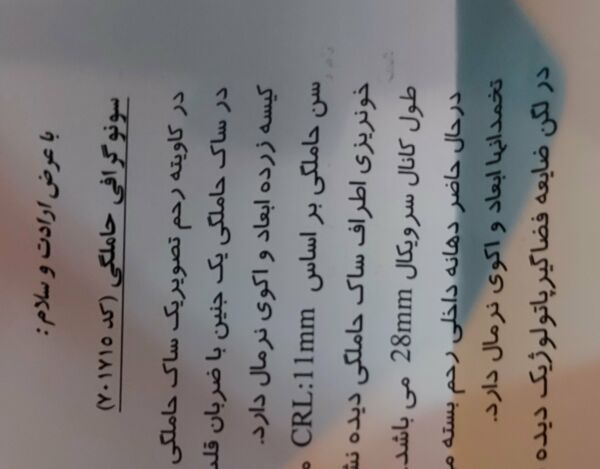 با عرض ارادت و سلام :
سونو گرافی حاملگی (کد ۷۰۱۷۱۵)
در کاویته رحم تصویر یک ساک حاملگی
در ساک حاملگی یک جنین با ضربان قلب
کیسه زرده ابعاد و اکوی نرمال دارد.
سن حاملگی بر اساس CRL:11mm
خونریزی اطراف ساک حاملگی دیده نش
طول کانال سرویکال 28mm می باشد.
درحال حاضر دهانه داخلی رحم بسته م
تخمدانها ابعاد و اکوی نرمال دارد.
در لگن ضایعه فضاگیر پاتولوژیک دیده